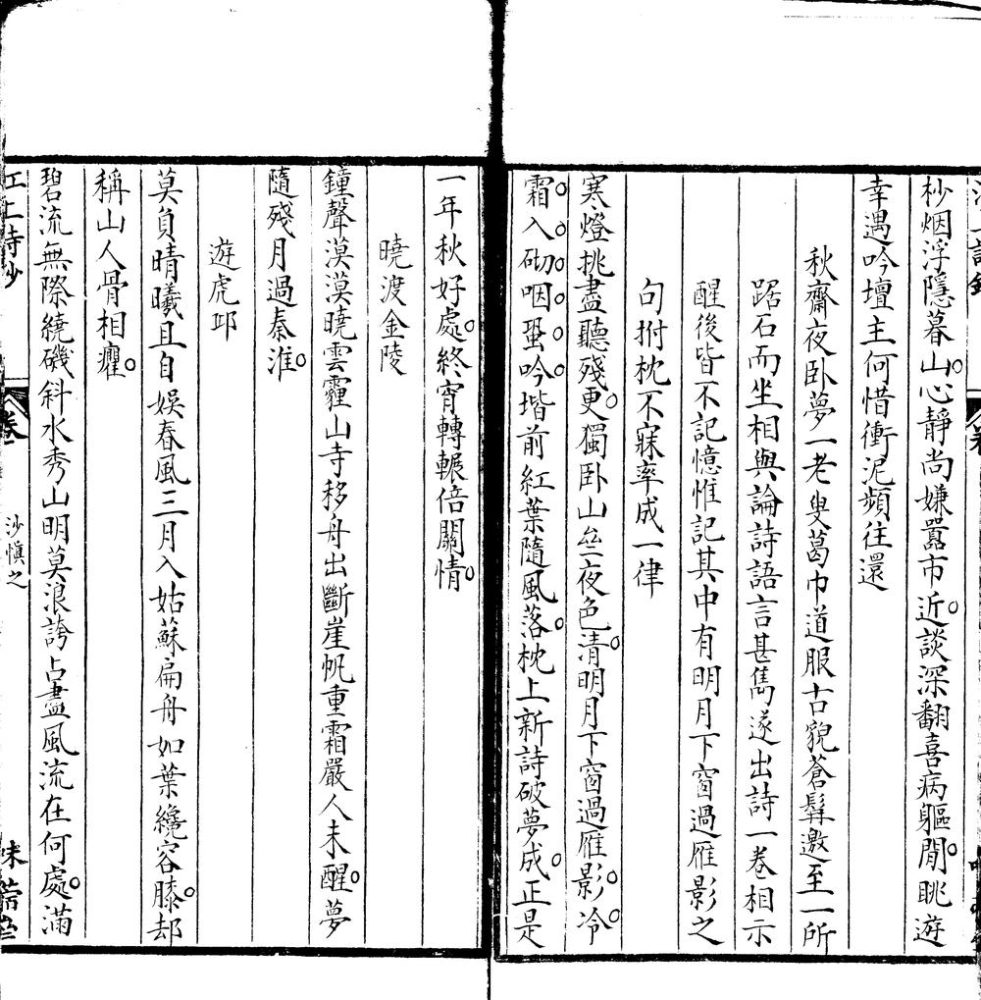 杪烟浮隱暮山。心靜尚嫌囂市近。談深翻喜病軀閒。眺遊
幸遇吟壇主何惜衝泥頻往還
秋齋夜卧夢一老叟葛巾道服古貌蒼髯邀至一所
踞石而坐相與論詩語言甚雋遂出詩一卷相示
醒後皆不記憶惟記其中有明月下窗過雁影之
句拊枕不寐率成一律
寒燈挑盡聽殘更。獨卧山空夜色清。明月下窗過雁影。冷。
霜。入。砌。咽。蛩。吟。堦前紅葉隨風落。枕上新詩破夢成。正是
一年秋好處。終宵轉輾倍關情。
曉渡金陵
鐘聲漠漠曉雲霾山寺移舟出斷崖帆重霜嚴人未醒。夢
隨殘月過秦淮。
遊虎邱
莫負晴曦且自娛春風三月入姑蘇扁舟如葉纔容膝。却
稱山人骨相癯。
碧流無際繞磯斜水秀山明莫浪誇占盡風流在何處。滿
江上詩鈔
卷
沙慎之